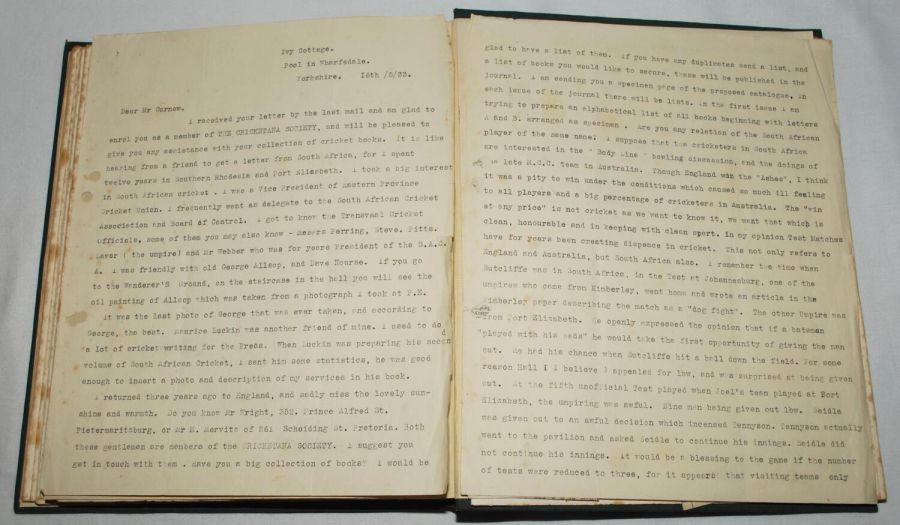 Ivy Cottage.
Pool in Wharfedale.
Yorkshire. 16th /6/33.
Dear Mr Curnow.
I received your letter by the last mail and am glad to
enrol you as a member of THE CRICKETANA SOCIETY, and will be pleased to
give you any assistance with your collection of cricket books. It is like
hearing from a friend to get a letter from South Africa, for I spent
twelve years in Southern Rhodesia and Port Elizabeth. I took a big interest
in South African cricket . I was a Vice President of Eastern Province
Cricket Union. I frequently went as delegate to the South African Cricket
Association and Board of Control. I got to know the Transvaal Cricket
Officials, some of them you may also know - Messrs Perring, Steve. Pitts.
Laver ( the umpire) and Mr Webber who was for years President of the S.A.C.
A. I was friendly with old George Allsop, and Dave Nourse. If you go
to the Wanderer's Ground, on the staircase in the hall you will see the
oil painting of Allsop which was taken from a photograph I took at P.E.
It was the last photo of George that was ever taken, and according to
George, the best. Maurice Luckin was another friend of mine. I used to do
a lot of cricket writing for the Press. When Luckin was preparing his second
volume of South African Cricket, I sent him some statistics, he was good
enough to insert a photo and description of my services in his book.
I returned three years ago to England, and sadly miss the lovely sun-
shine and warmth. Do you know Mr Wright, 352. Prince Alfred St.
Pietermaritzburg, or Mr H. Mervitz of 261 Scheiding St. Pretoria. Both
these gentlemen are members of the CRICKETANA SOCIETY. I suggest you
get in touch with them . Have you a big collection of books? I would be
glad to have a list of them. If you have any duplicates send a list, and
a list of books you would like to secure, these will be published in the
journal. I am sending you a specimen page of the proposed catalogue. In
each issue of the journal there will be lists. In the first issue I am
trying to prepare an alphabetical list of all books beginning with letters
A and B. arranged as specimen . Are you any relation of the South African
player of the same name? I suppose that the cricketers in South Africa
are interested in the " Body Line " bowling discussion, and the doings of
the late M.C.C. team in Australia. Though England won the "Ashes", I think
it was a pity to win under the conditions which caused so much ill feeling
to all players and a big percentage of cricketers in Australia. The "win
at any price" is not cricket as we want to know it, we want that which is
clean, honourable and in keeping with clean sport. In my opinion Test Matches
have for years been creating dispeace in cricket. This not only refers to
England and Australia, but South Africa also. I remember the time when
Sutcliffe was in South Africa, in the Test at Johannesburg, one of the
umpires who came from Kimberley, went home and wrote an article in the
Kimberley paper describing the match as a "dog fight". The other Umpire was
from Port Elizabeth. He openly expressed the opinion that if a batsman
"played with his pads" he would take the first opportunity of giving the man
out. He had his chance when Sutcliffe hit a ball down the field. For some
reason Hall ( I believe ) appealed for lbw, and was surprised at being given
out. At the fifth unofficial Test played when Joel's team played at Port
Elizabeth, the umpiring was awful. Nine men being given out lbw. Seidle
was given out to an awful decision which incensed Tennyson. Tennyson actually
went to the pavilion and asked Seidle to continue his innings. Seidle did
not continue his innings. It would be a blessing to the game if the number
of tests were reduced to three, for it appears that visiting teams only